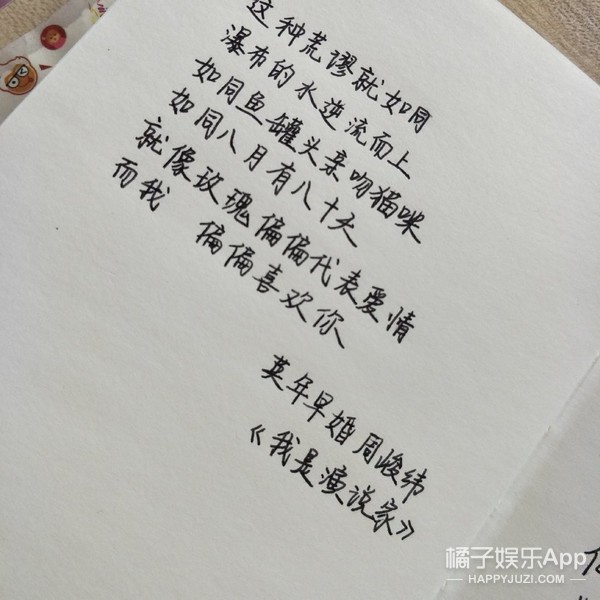 这种荒谬就如同
瀑布的水逆流而上
如同鱼罐头亲吻猫咪
如同八月有八十天
就像玫瑰偏偏代表爱情
而我 偏偏喜欢你
英年早婚周峻纬
《我是演说家》
橘子娱乐App
HAPPYJUZI.COM